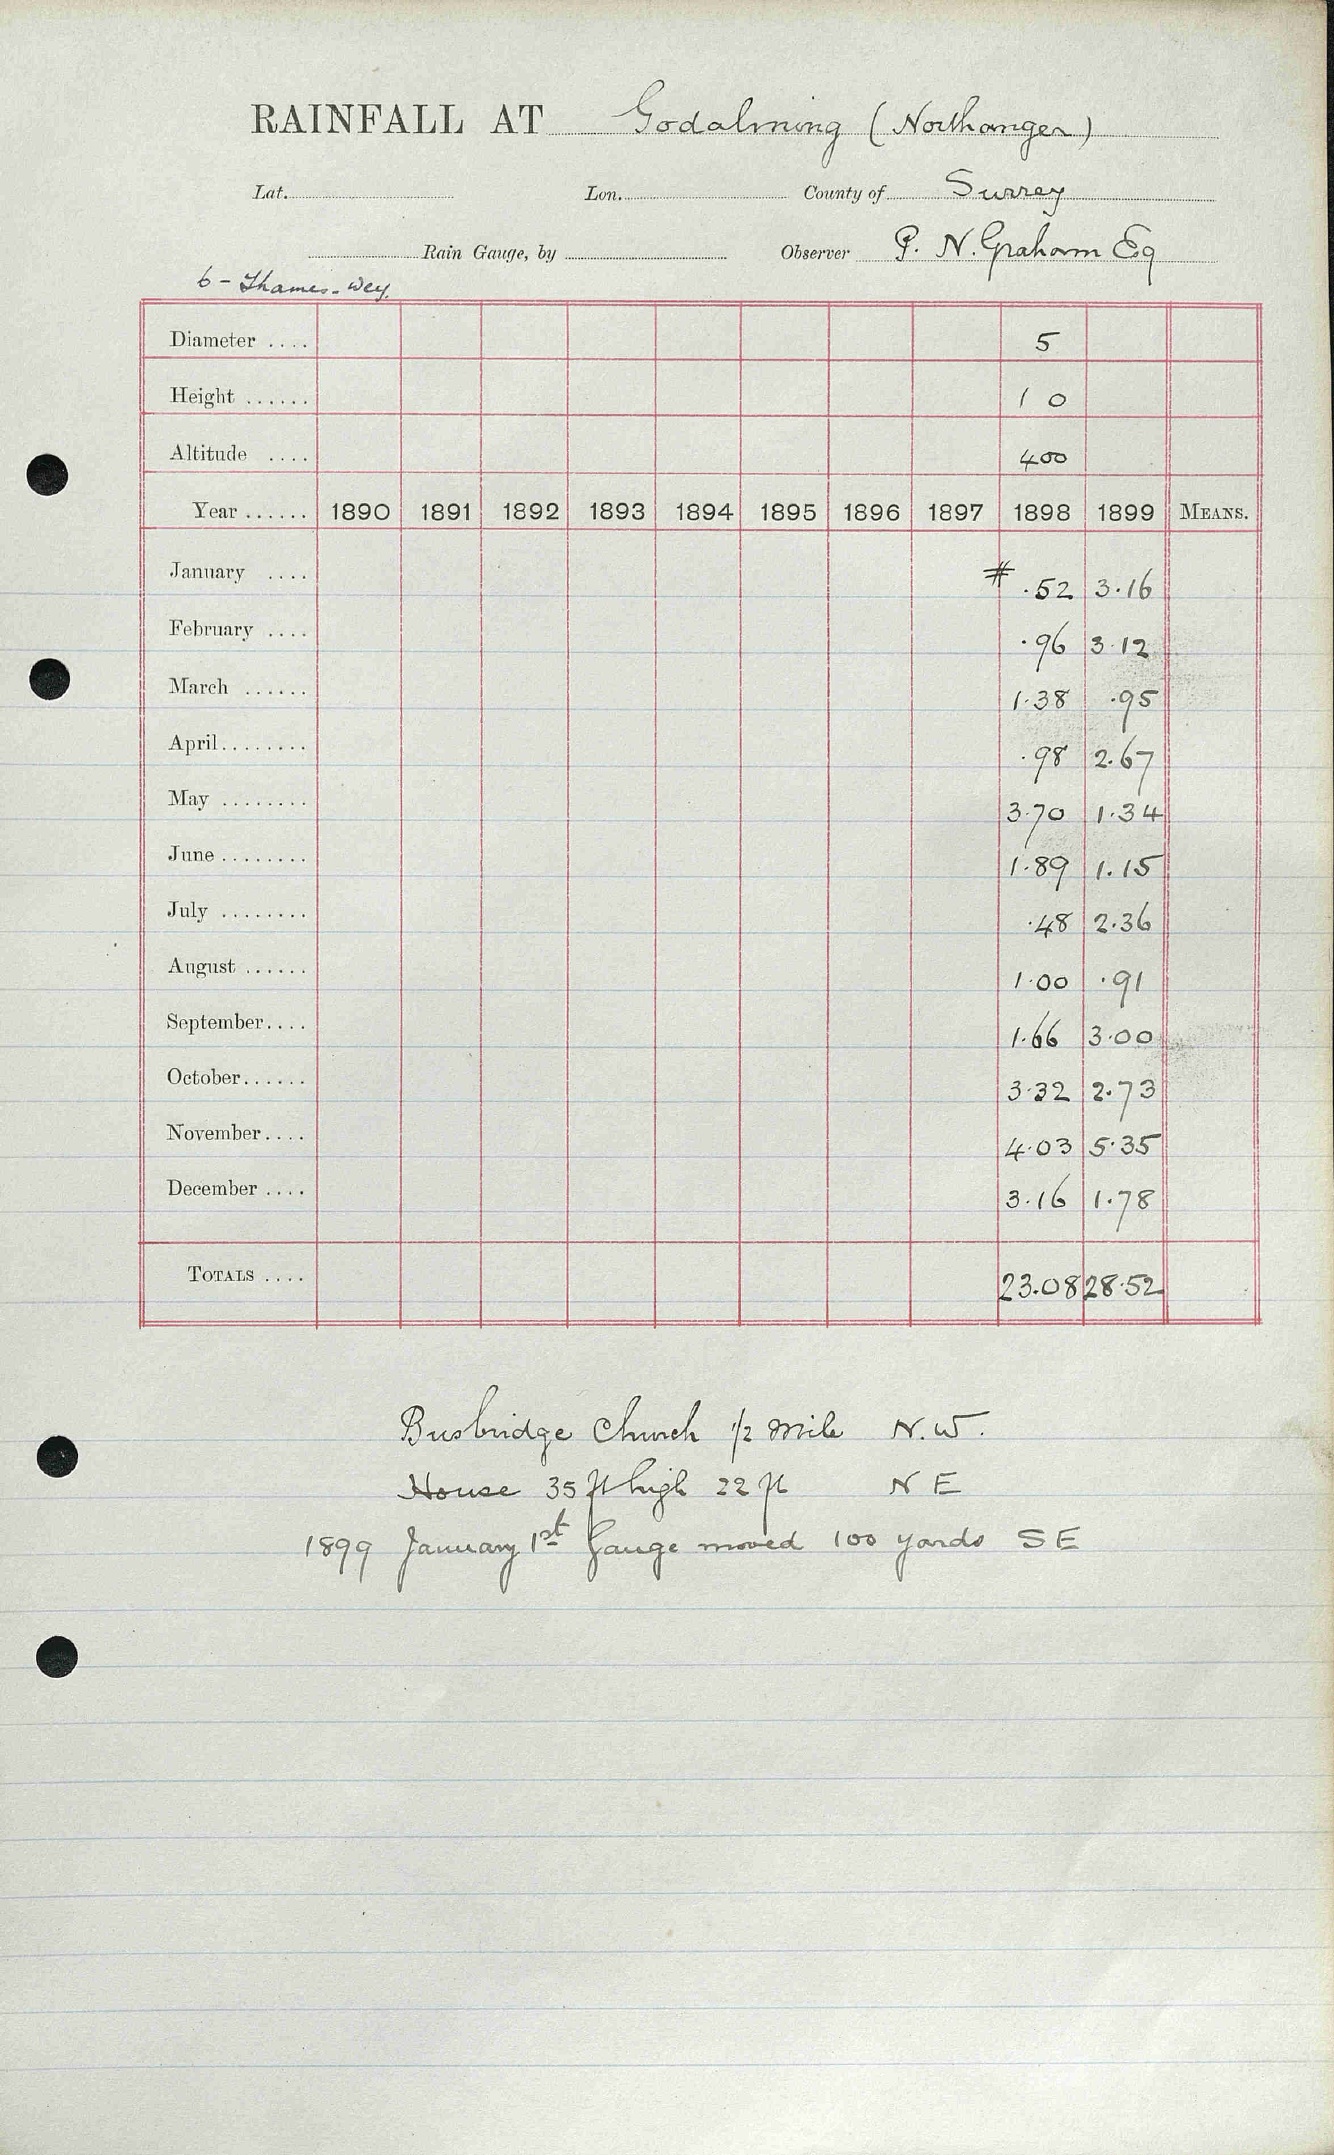 RAINFALL AT Godalming (Northanger)
Lat. Lon. County of Surrey
Rain Gauge, by Observer P. N. Graham Esq
6 - Thames - Wey.
Diameter .... 5
Height ...... 1 0
Altitude .... 400
Year ...... 1890 1891 1892 1893 1894 1895 1896 1897 1898 1899 MEANS.
January .... # .52 3.16
February .... .96 3.12
March ...... 1.38 .95
April........ .98 2.67
May ........ 3.70 1.34
June ........ 1.89 1.15
July ........ .48 2.36
August ...... 1.00 .91
September.... 1.66 3.00
October...... 3.32 2.73
November.... 4.03 5.35
December .... 3.16 1.78
TOTALS .... 23.08 28.52
Busbridge Church 1/2 mile N.W.
House 35 ft high 22 ft N E
1899 January 1st Gauge moved 100 yards S E